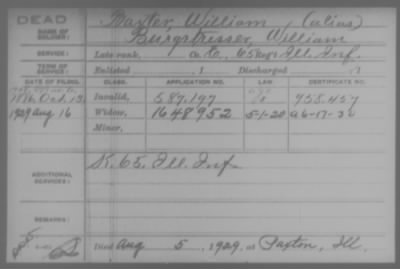 DEAD
NAME OF SOLDIER:
Baxter, William (alias)
Burgstresser, William
SERVICE:
Late rank, Co. E, 65 Reg't Ill. Inf.
TERM OF SERVICE:
Enlisted , 1 Discharged , 1
DATE OF FILING. CLASS. APPLICATION NO. LAW. CERTIFICATE NO.
1886 Oct. 13 Invalid, 587.197 958.457
1929 Aug 16 Widow, 1648952 5-1-20 a6-17-30
Minor,
ADDITIONAL SERVICES:
K. 65. Ill. Inf.
REMARKS:
Died Aug 5, 1929, at Paxton, Ill.